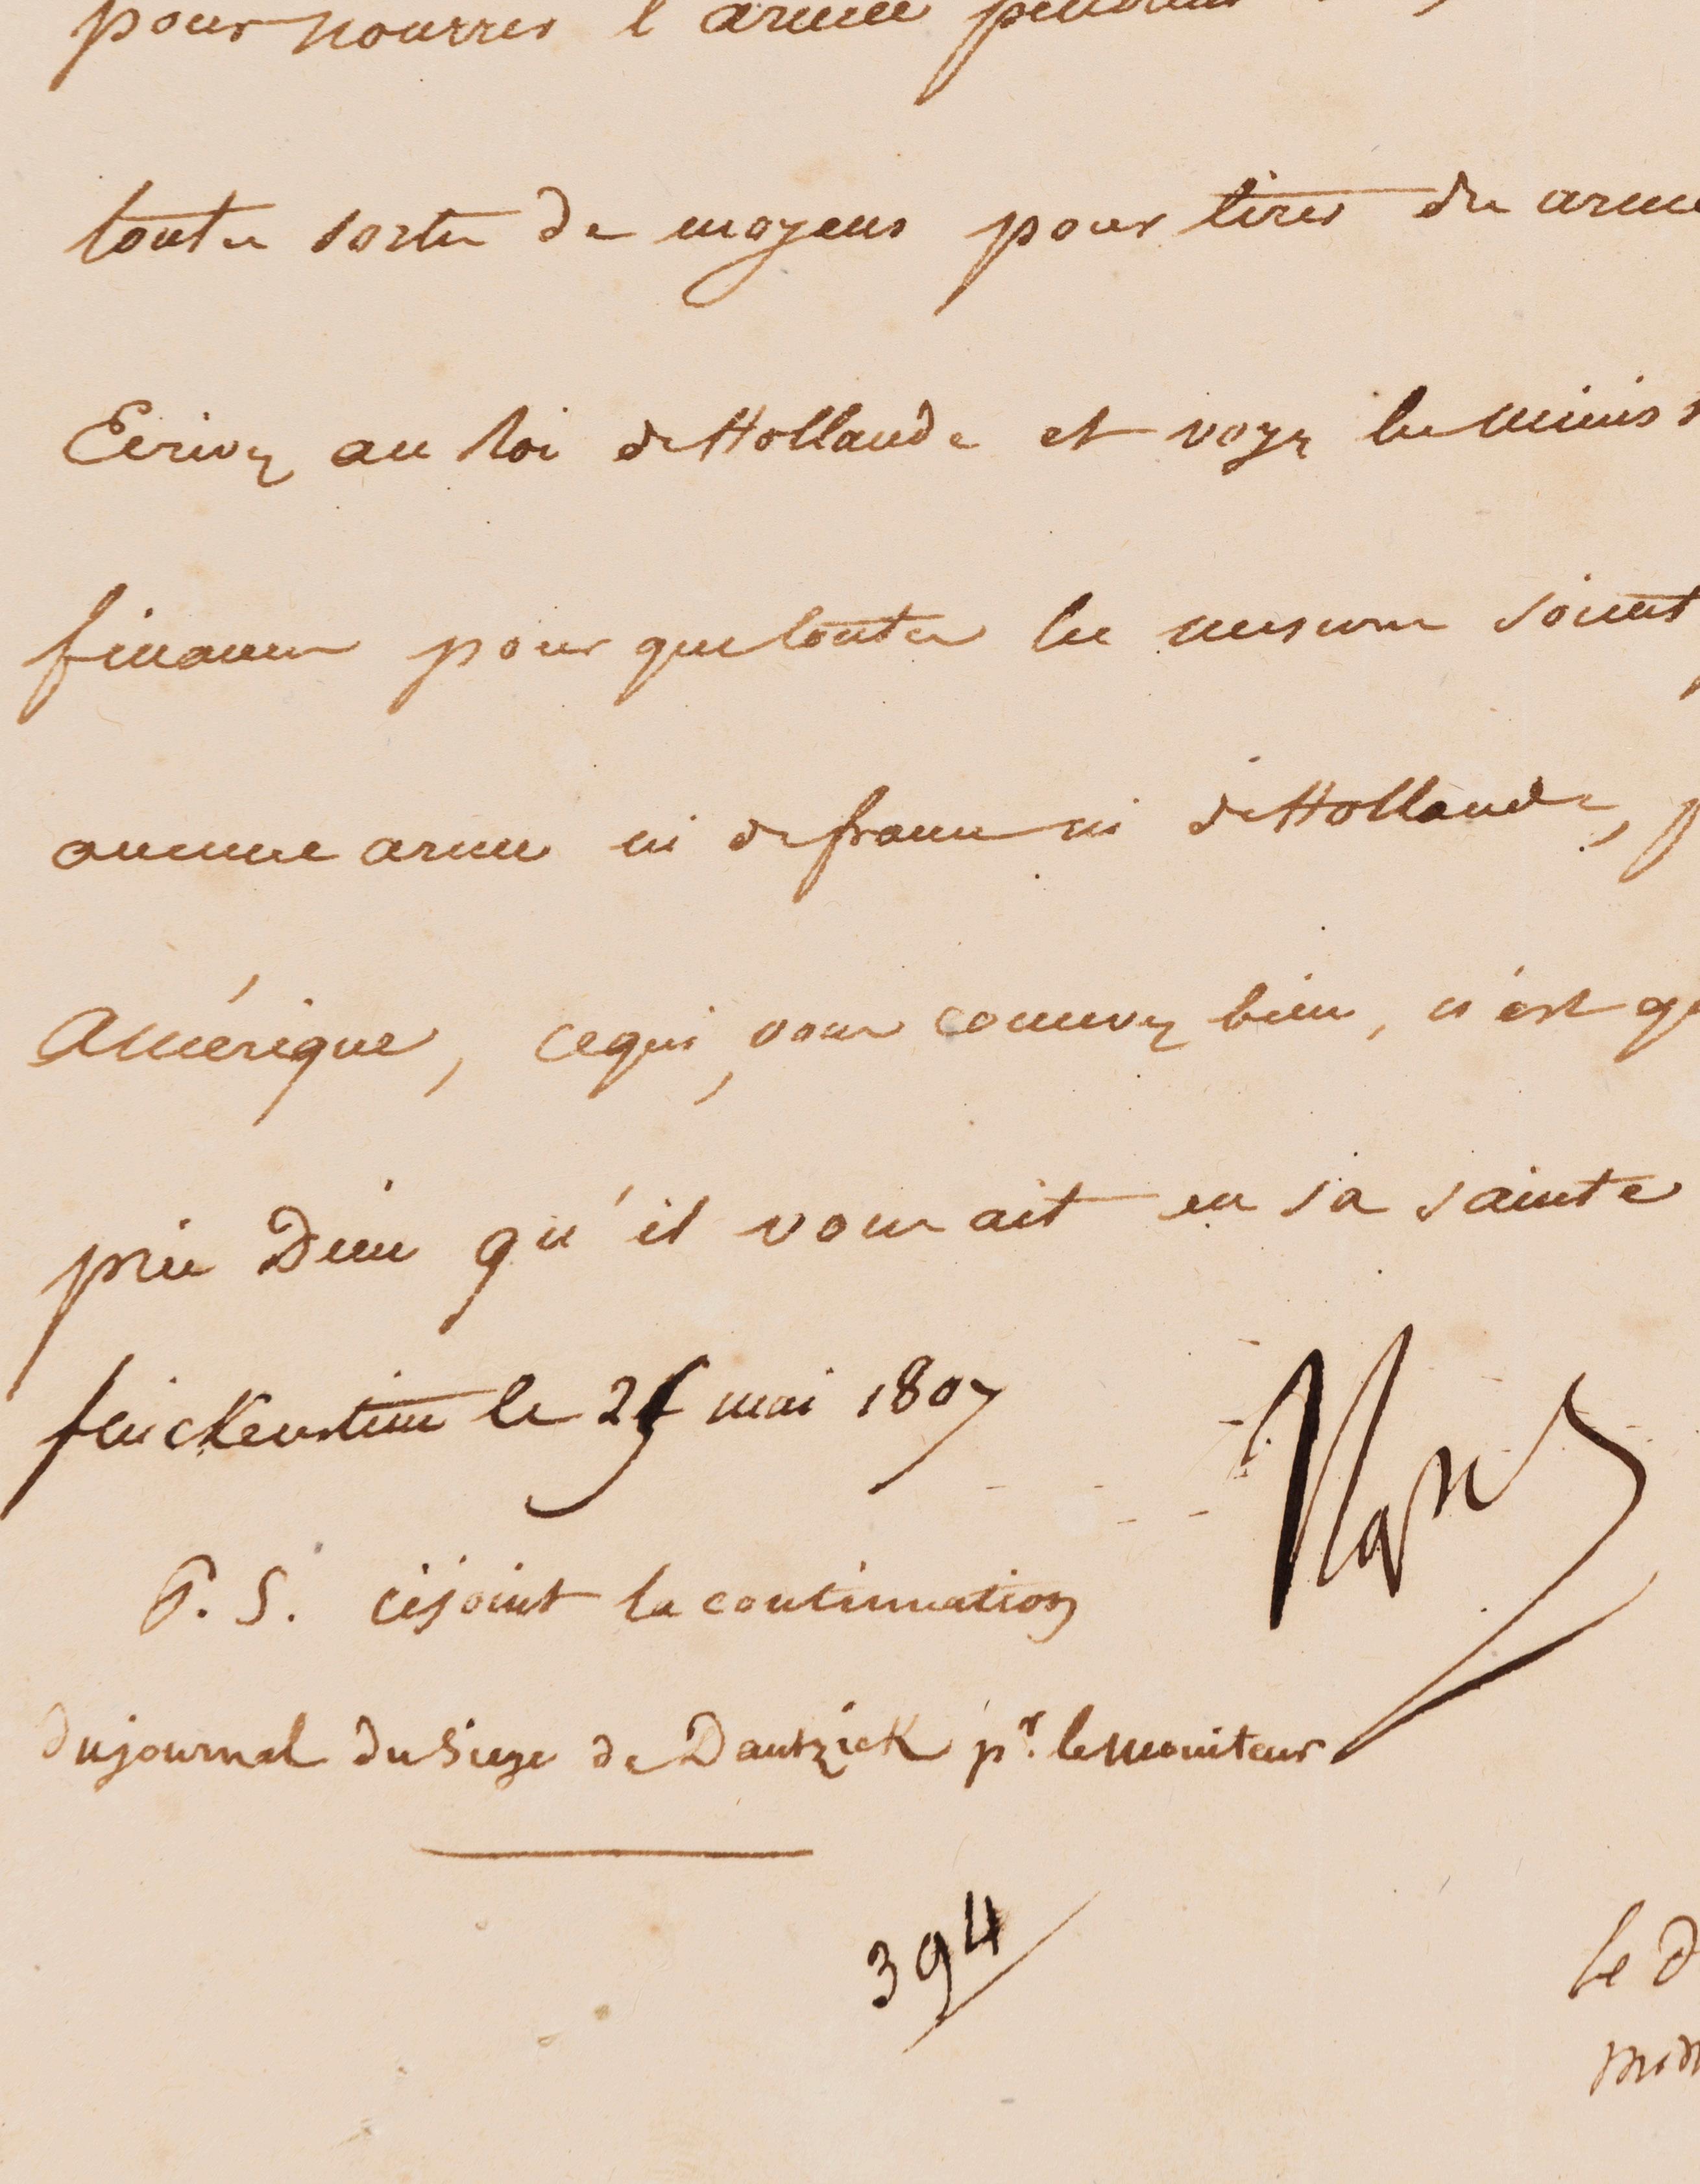 pour nourrir l'armée pendant
toutes sortes de moyens pour tirer des armes
Ecrivez au Roi de Hollande et voyez le minist
finances pour que toutes les mesures soient
aucune arme ni de france ni de Hollande, p
Amérique, ce qui, vous concevez bien, n'est q
prie Dieu qu'il vous ait en sa sainte
finckenstein le 25 mai 1807
Nap
P. S. cijoint la continuation
du journal du Siege de Dantzick pr. le moniteur
394
Le D